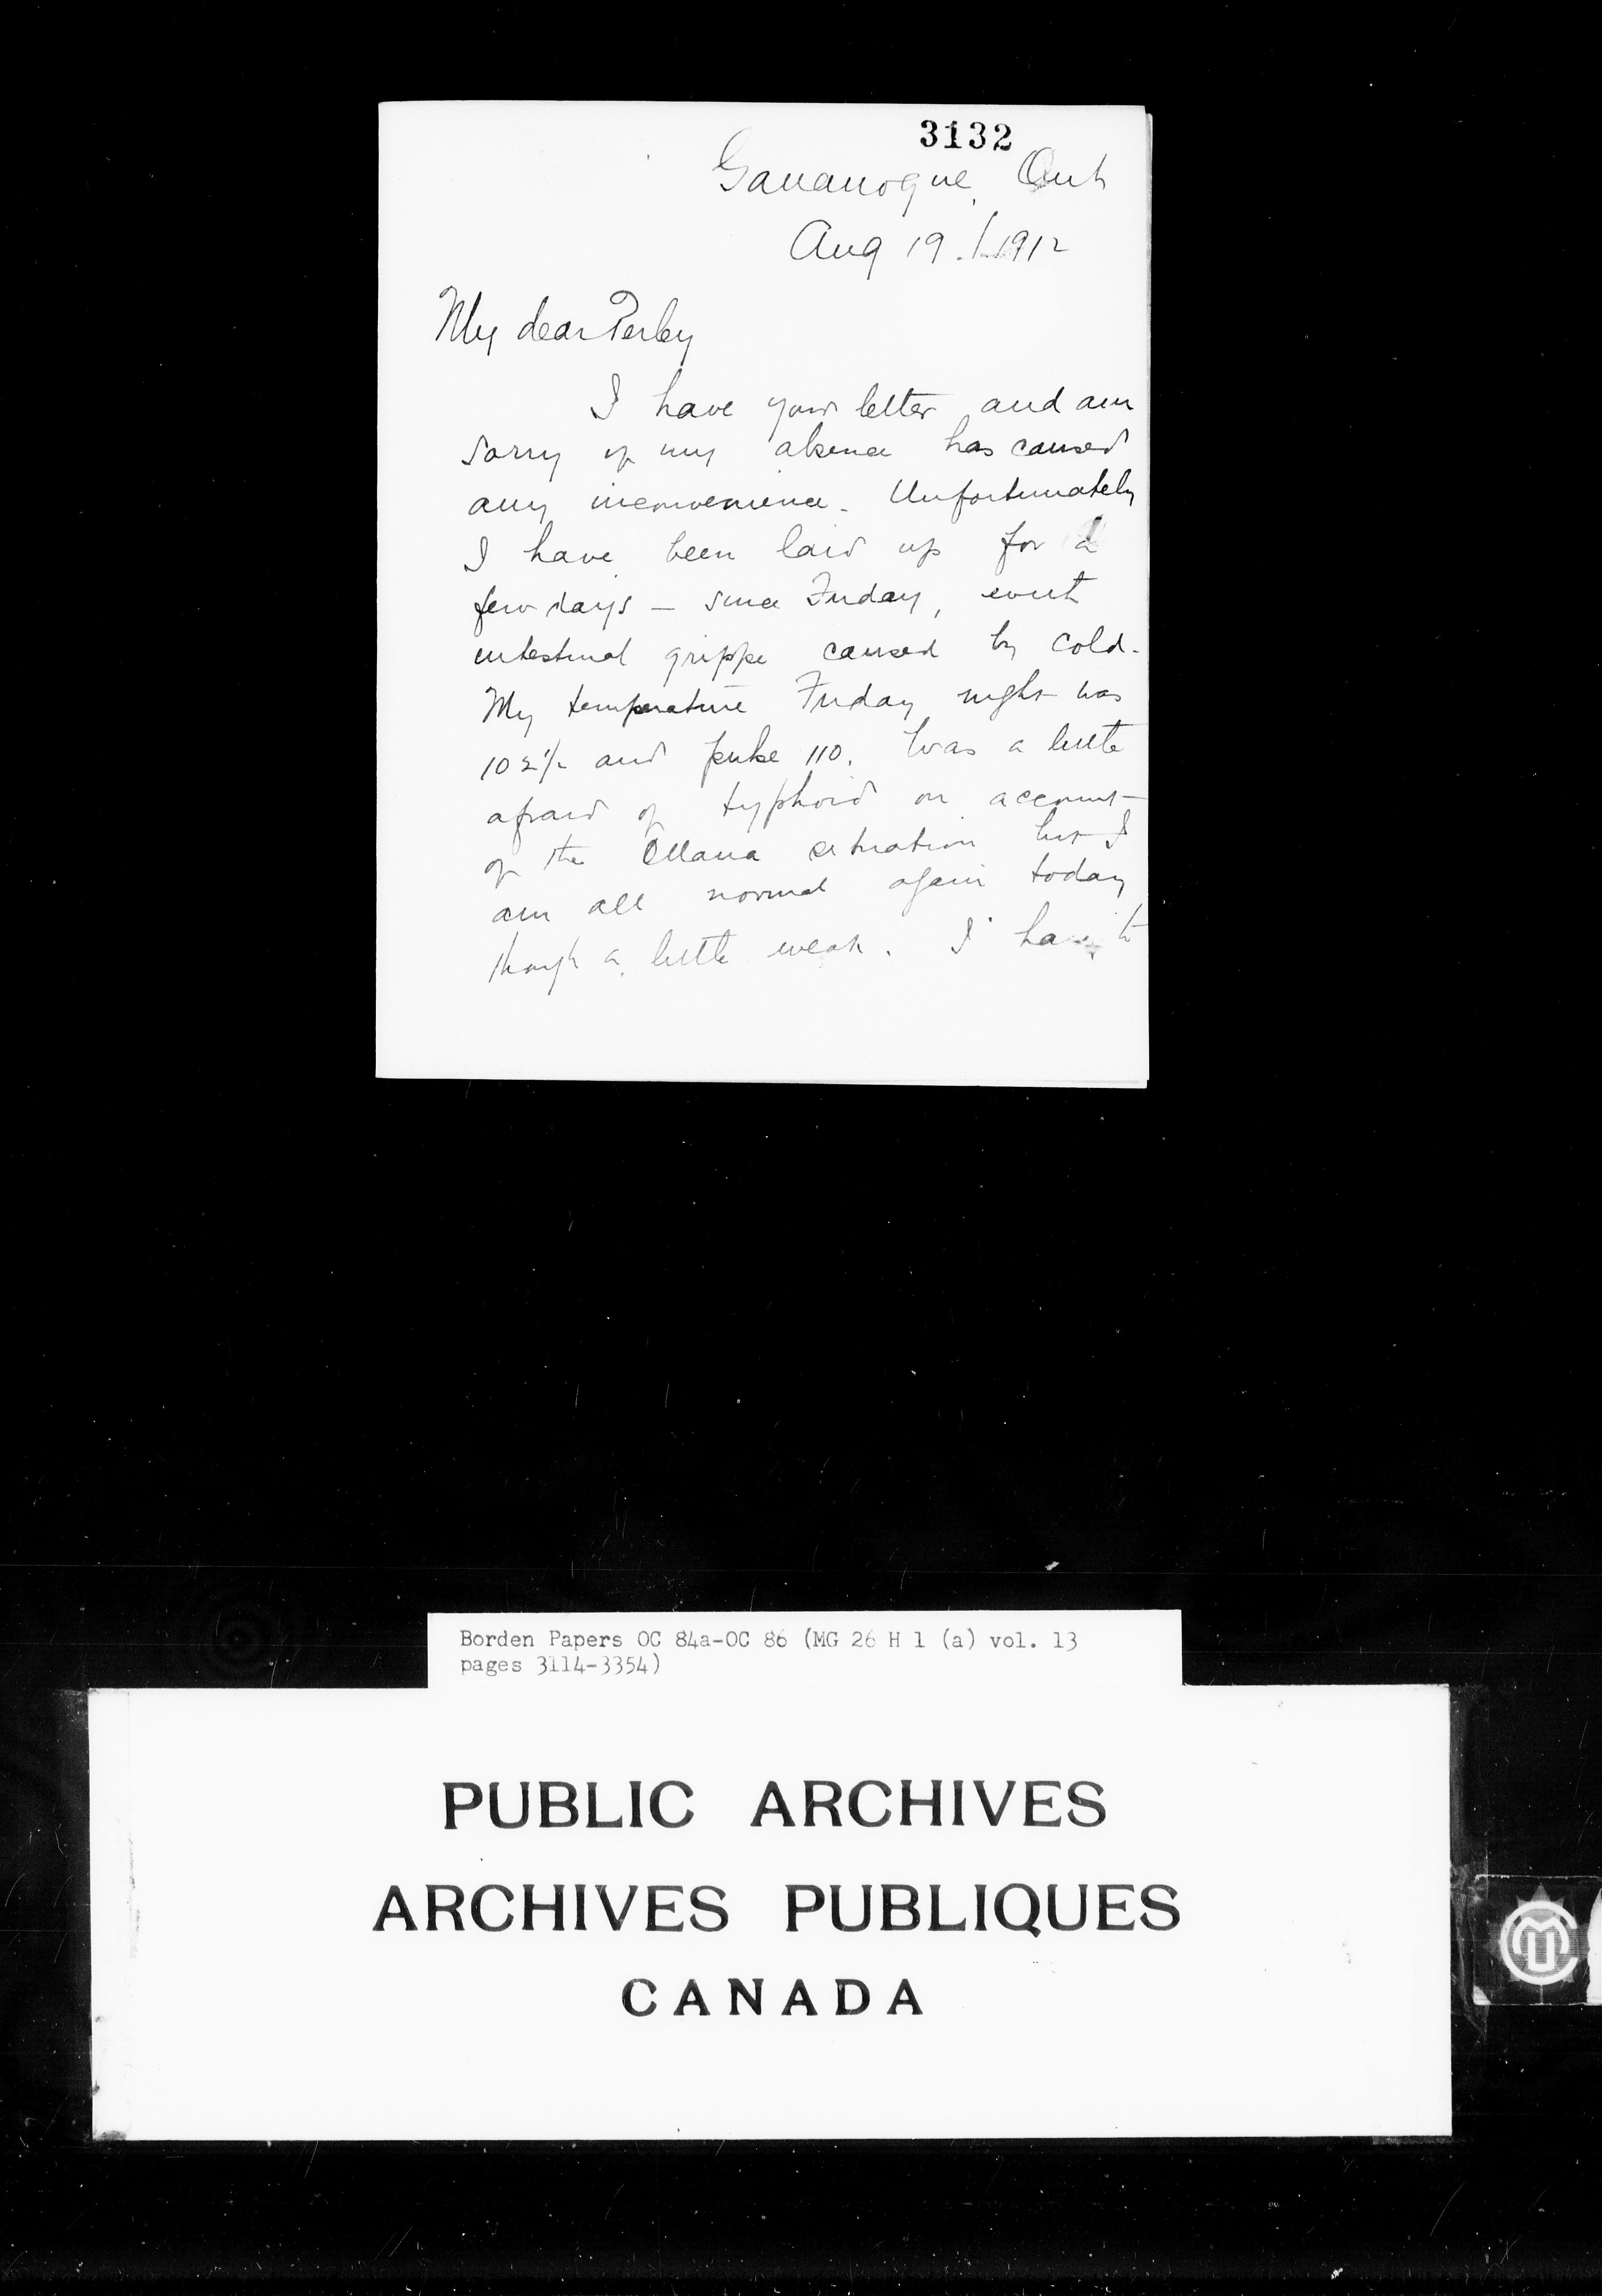 3132
Gananoque, Ont
Aug 19. / 1912
My dear Perley
I have your letter and am
sorry if my absence has caused
any inconvenience. Unfortunately
I have been laid up for a
few days – since Friday, with
intestinal grippe caused by cold.
My temperature Friday night was
102½ and pulse 110. Was a little
afraid of typhoid on account
of the Ottawa situation but I
am all normal again today
though a little weak. I have to
Borden Papers OC 84a-OC 86 (MG 26 H 1 (a) vol. 13
pages 3114-3354)
PUBLIC ARCHIVES
ARCHIVES PUBLIQUES
CANADA